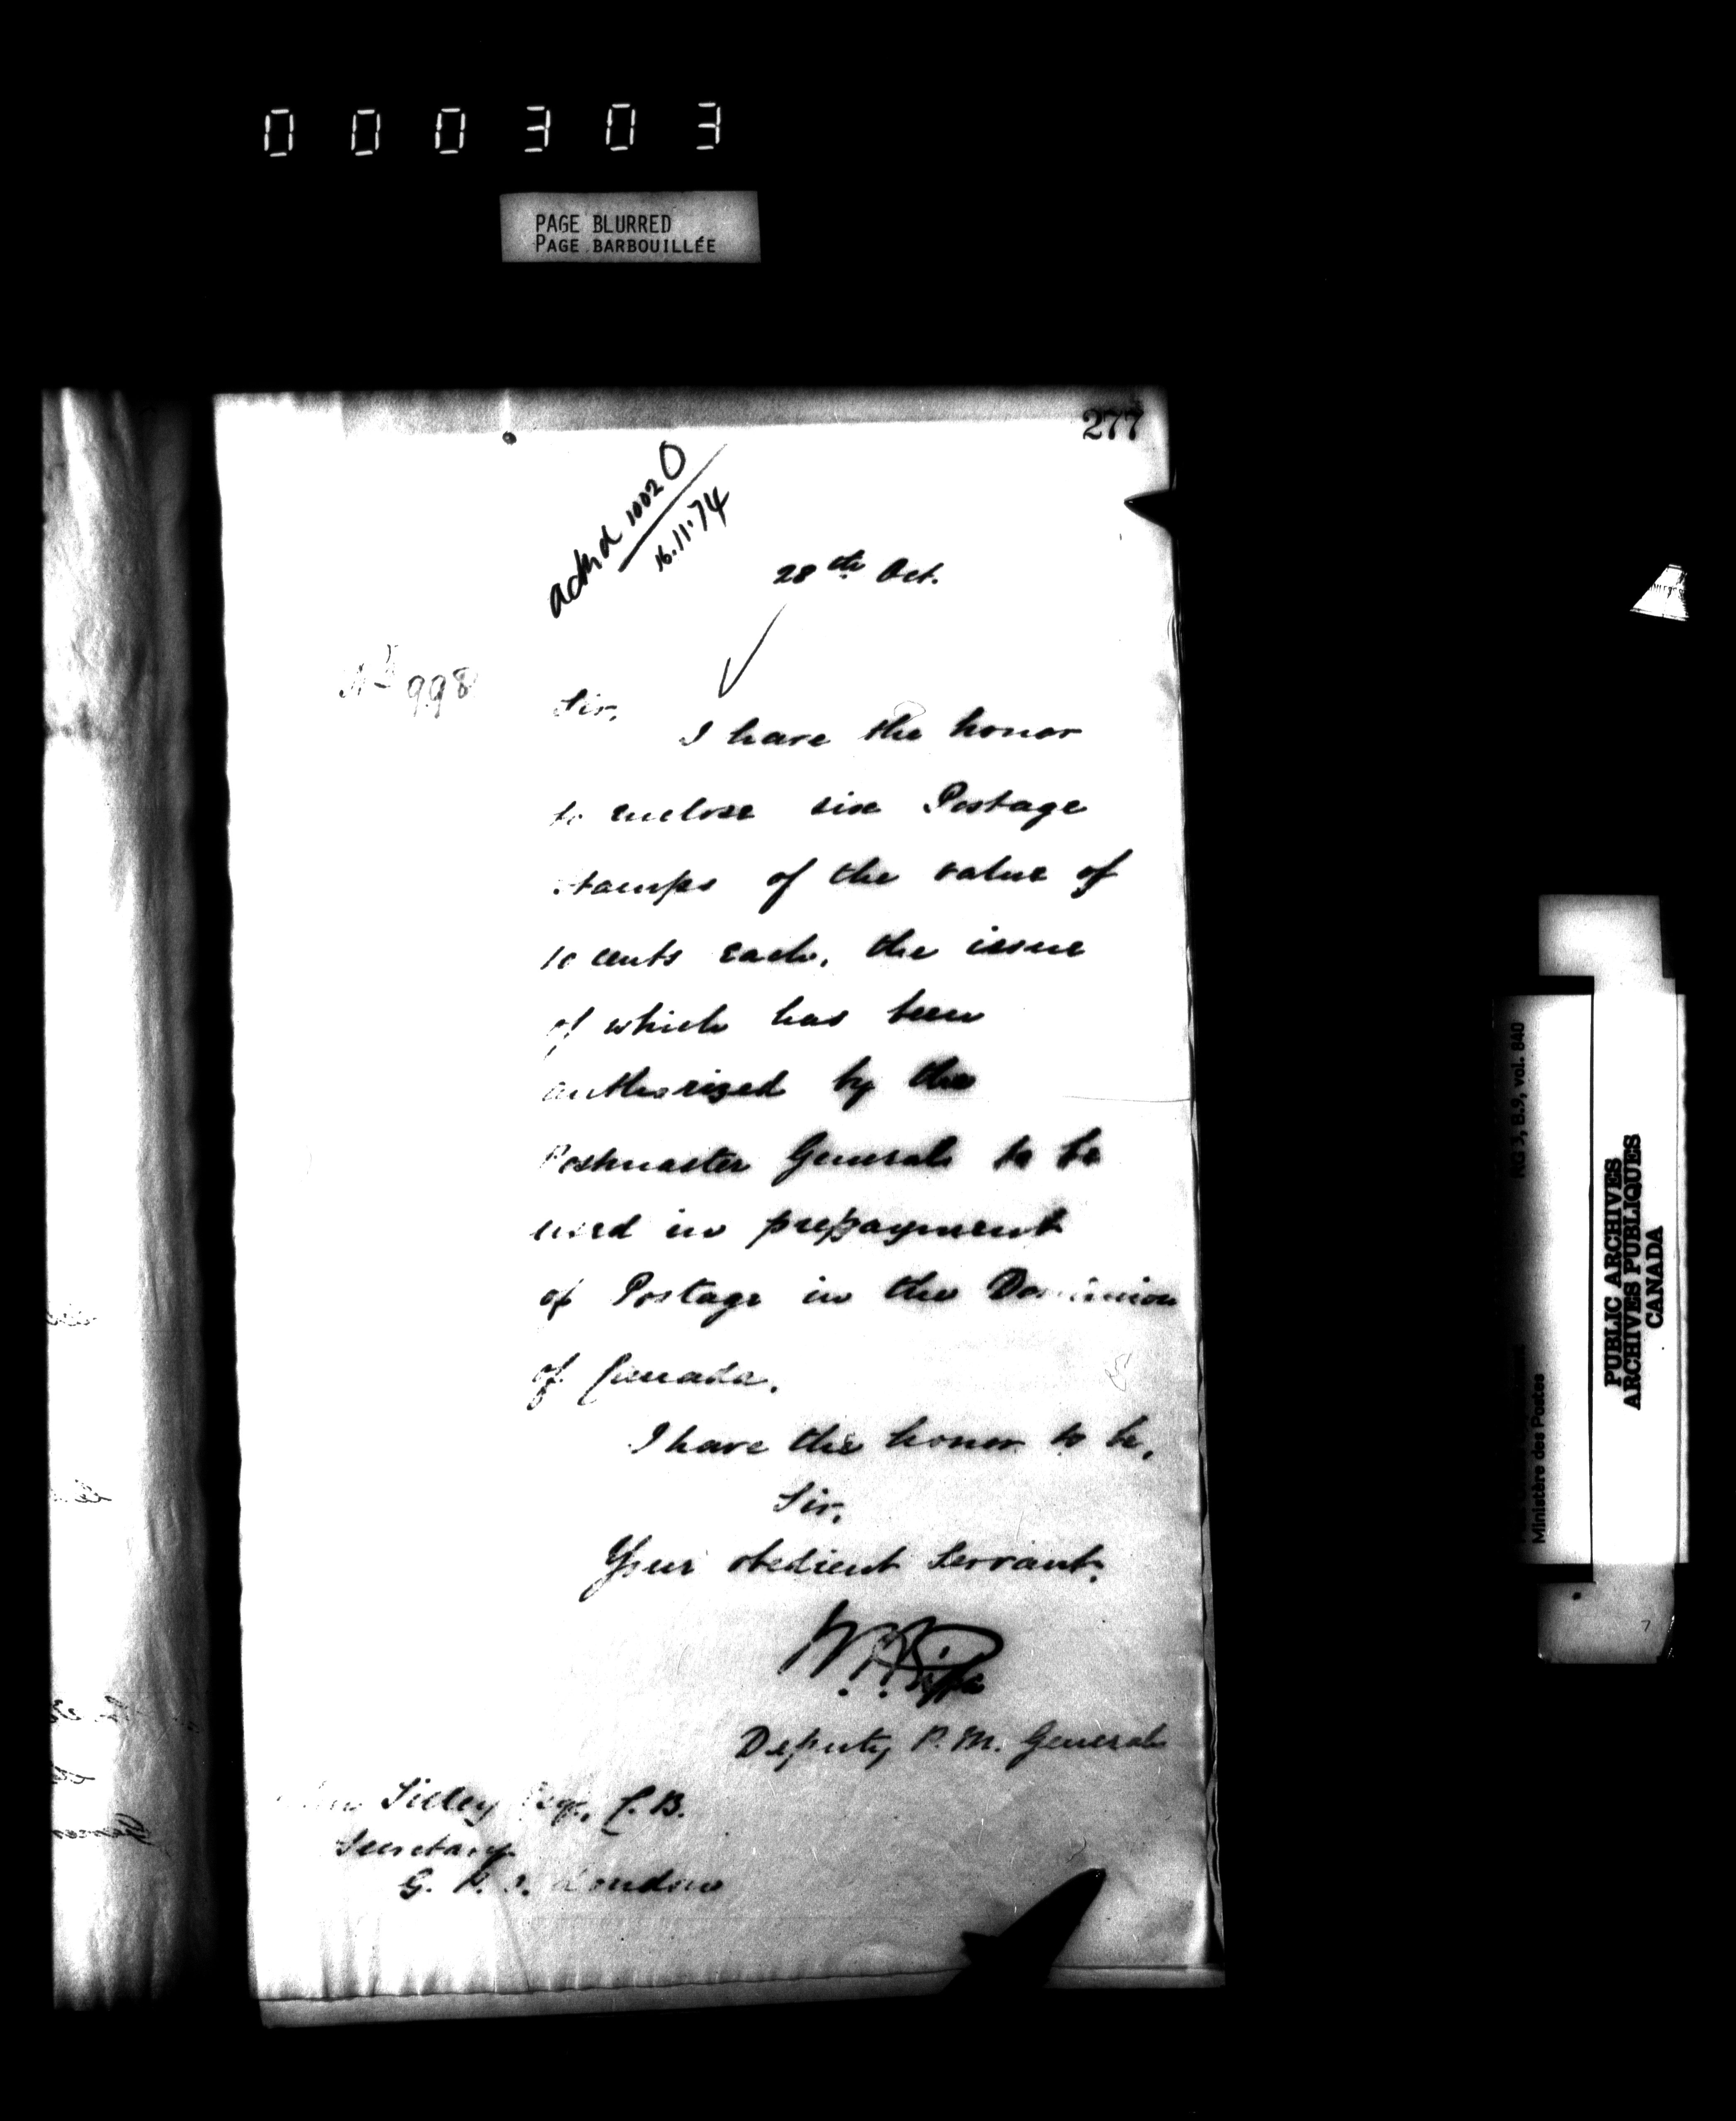 000303
PAGE BLURRED
PAGE BARBOUILLÉE
277
ackd 1002 O
16.11.74
28th Oct.
No 998
Sir,
I have the honor
to enclose six Postage
stamps of the value of
10 cents each, the issue
of which has been
authorized by the
Postmaster General to be
used in prepayment
of Postage in the Dominion
of Canada.
I have the honor to be,
Sir,
Your obedient Servant.
Deputy P. M. General
Tilley Esqr., C.B.
Secretary
G. P. O. London
RG 3, B.9, vol. 840
Ministère des Postes
PUBLIC ARCHIVES
ARCHIVES PUBLIQUES
CANADA